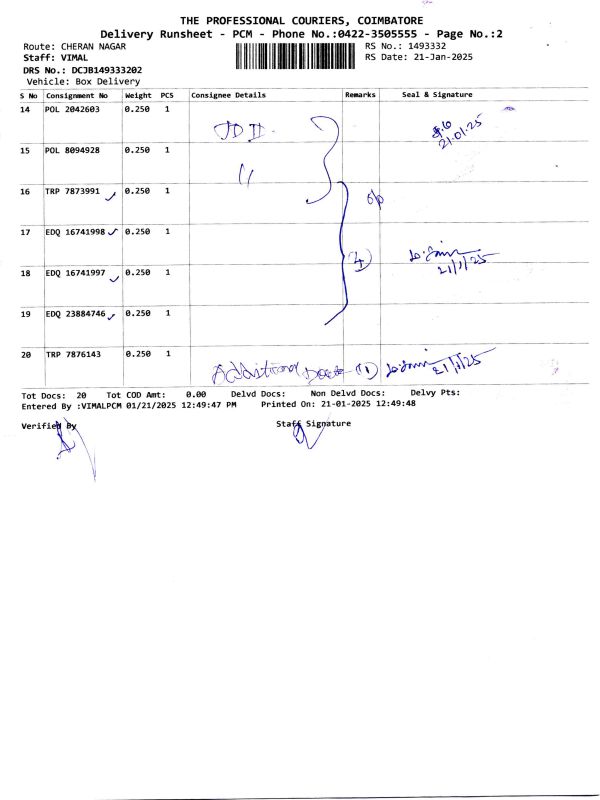 THE PROFESSIONAL COURIERS, COIMBATORE
Delivery Runsheet - PCM - Phone No.:0422-3505555 - Page No.:2
Route: CHERAN NAGAR RS No.: 1493332
Staff: VIMAL RS Date: 21-Jan-2025
DRS No.: DCJB149333202
Vehicle: Box Delivery
S No Consignment No Weight PCS Consignee Details Remarks Seal & Signature
14 POL 2042603 0.250 1
21.01.25
15 POL 8094928 0.250 1
16 TRP 7873991 0.250 1
17 EDQ 16741998 0.250 1
(4) 21/1/25
18 EDQ 16741997 0.250 1
19 EDQ 23884746 0.250 1
20 TRP 7876143 0.250 1
Additional (1) 21/1/25
Tot Docs: 20 Tot COD Amt: 0.00 Delvd Docs: Non Delvd Docs: Delvy Pts:
Entered By :VIMALPCM 01/21/2025 12:49:47 PM Printed On: 21-01-2025 12:49:48
Verified By Staff Signature